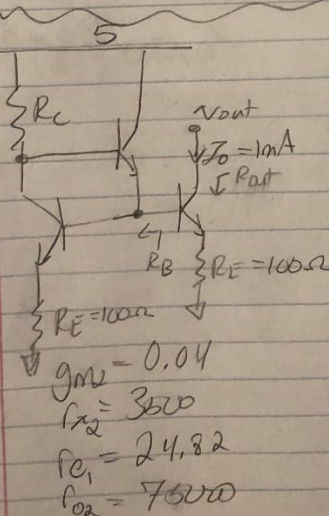 5
Rc
Vout
Io = 1mA
Rout
RB
RE = 100Ω
RE = 100Ω
gm2 = 0.04
rπ2 = 3600
re1 = 24.82
ro2 = 75000